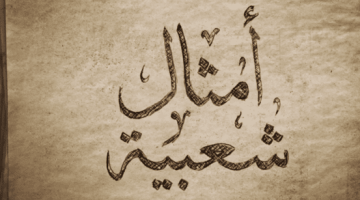 أمثال
شعبية